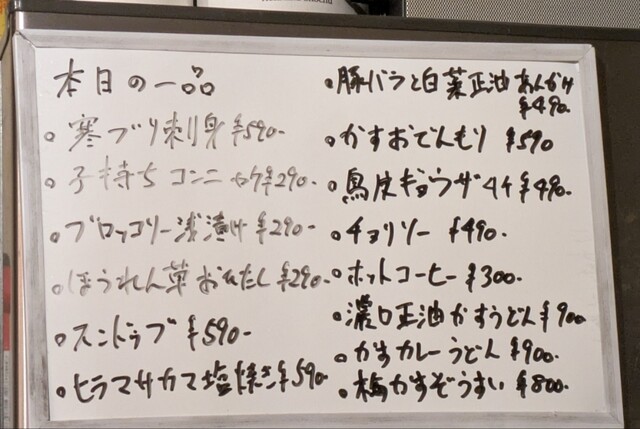 本日の一品
。寒ブリ刺身 ¥590-
。子持ちコンニャク ¥290-
。ブロッコリー浅漬け ¥290-
。ほうれん草おひたし ¥290-
。スンドゥブ ¥590-
。ヒラマサカマ塩焼き ¥590-
。豚バラと白菜正油あんかけ
¥490-
。かすおでんもり ¥590
。鳥皮ギョウザ4ケ ¥490-
。チョリソー ¥490-
。ホットコーヒー ¥300-
。濃口正油かすうどん ¥900
。かすカレーうどん ¥900-
。梅かすぞうすい ¥800-